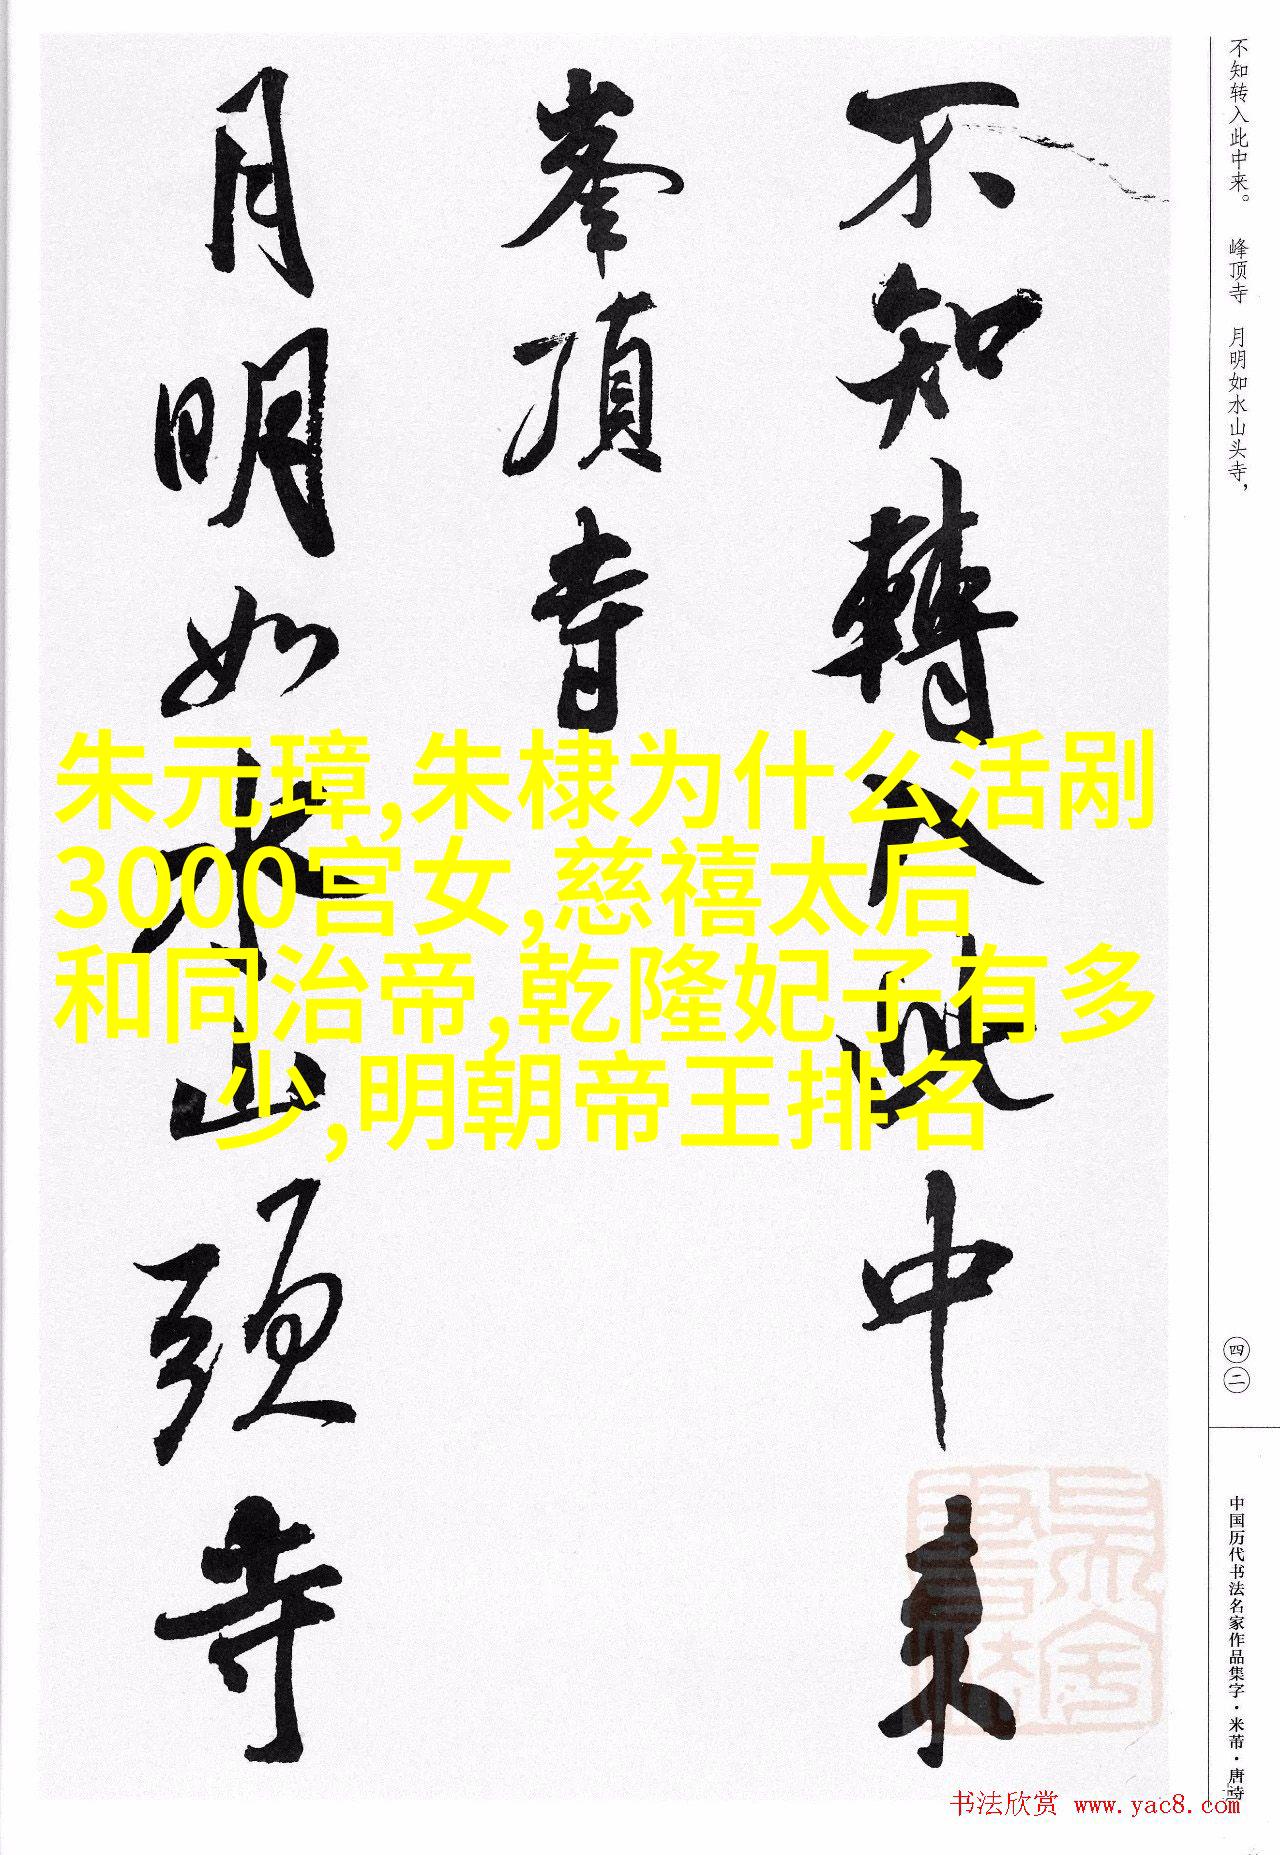 不知轉入此中来
峯頂寺
月明如水山頭寺
朱元璋,朱棣为什么活剐
3000宫女,慈禧太后
和同治帝,乾隆妃子有多
少,明朝帝王排名
不知转入此中来。 峰顶寺 月明如水山头寺,
四二
中国历代书法名家作品集字·米芾·唐诗
书法欣赏 www.yac8.com